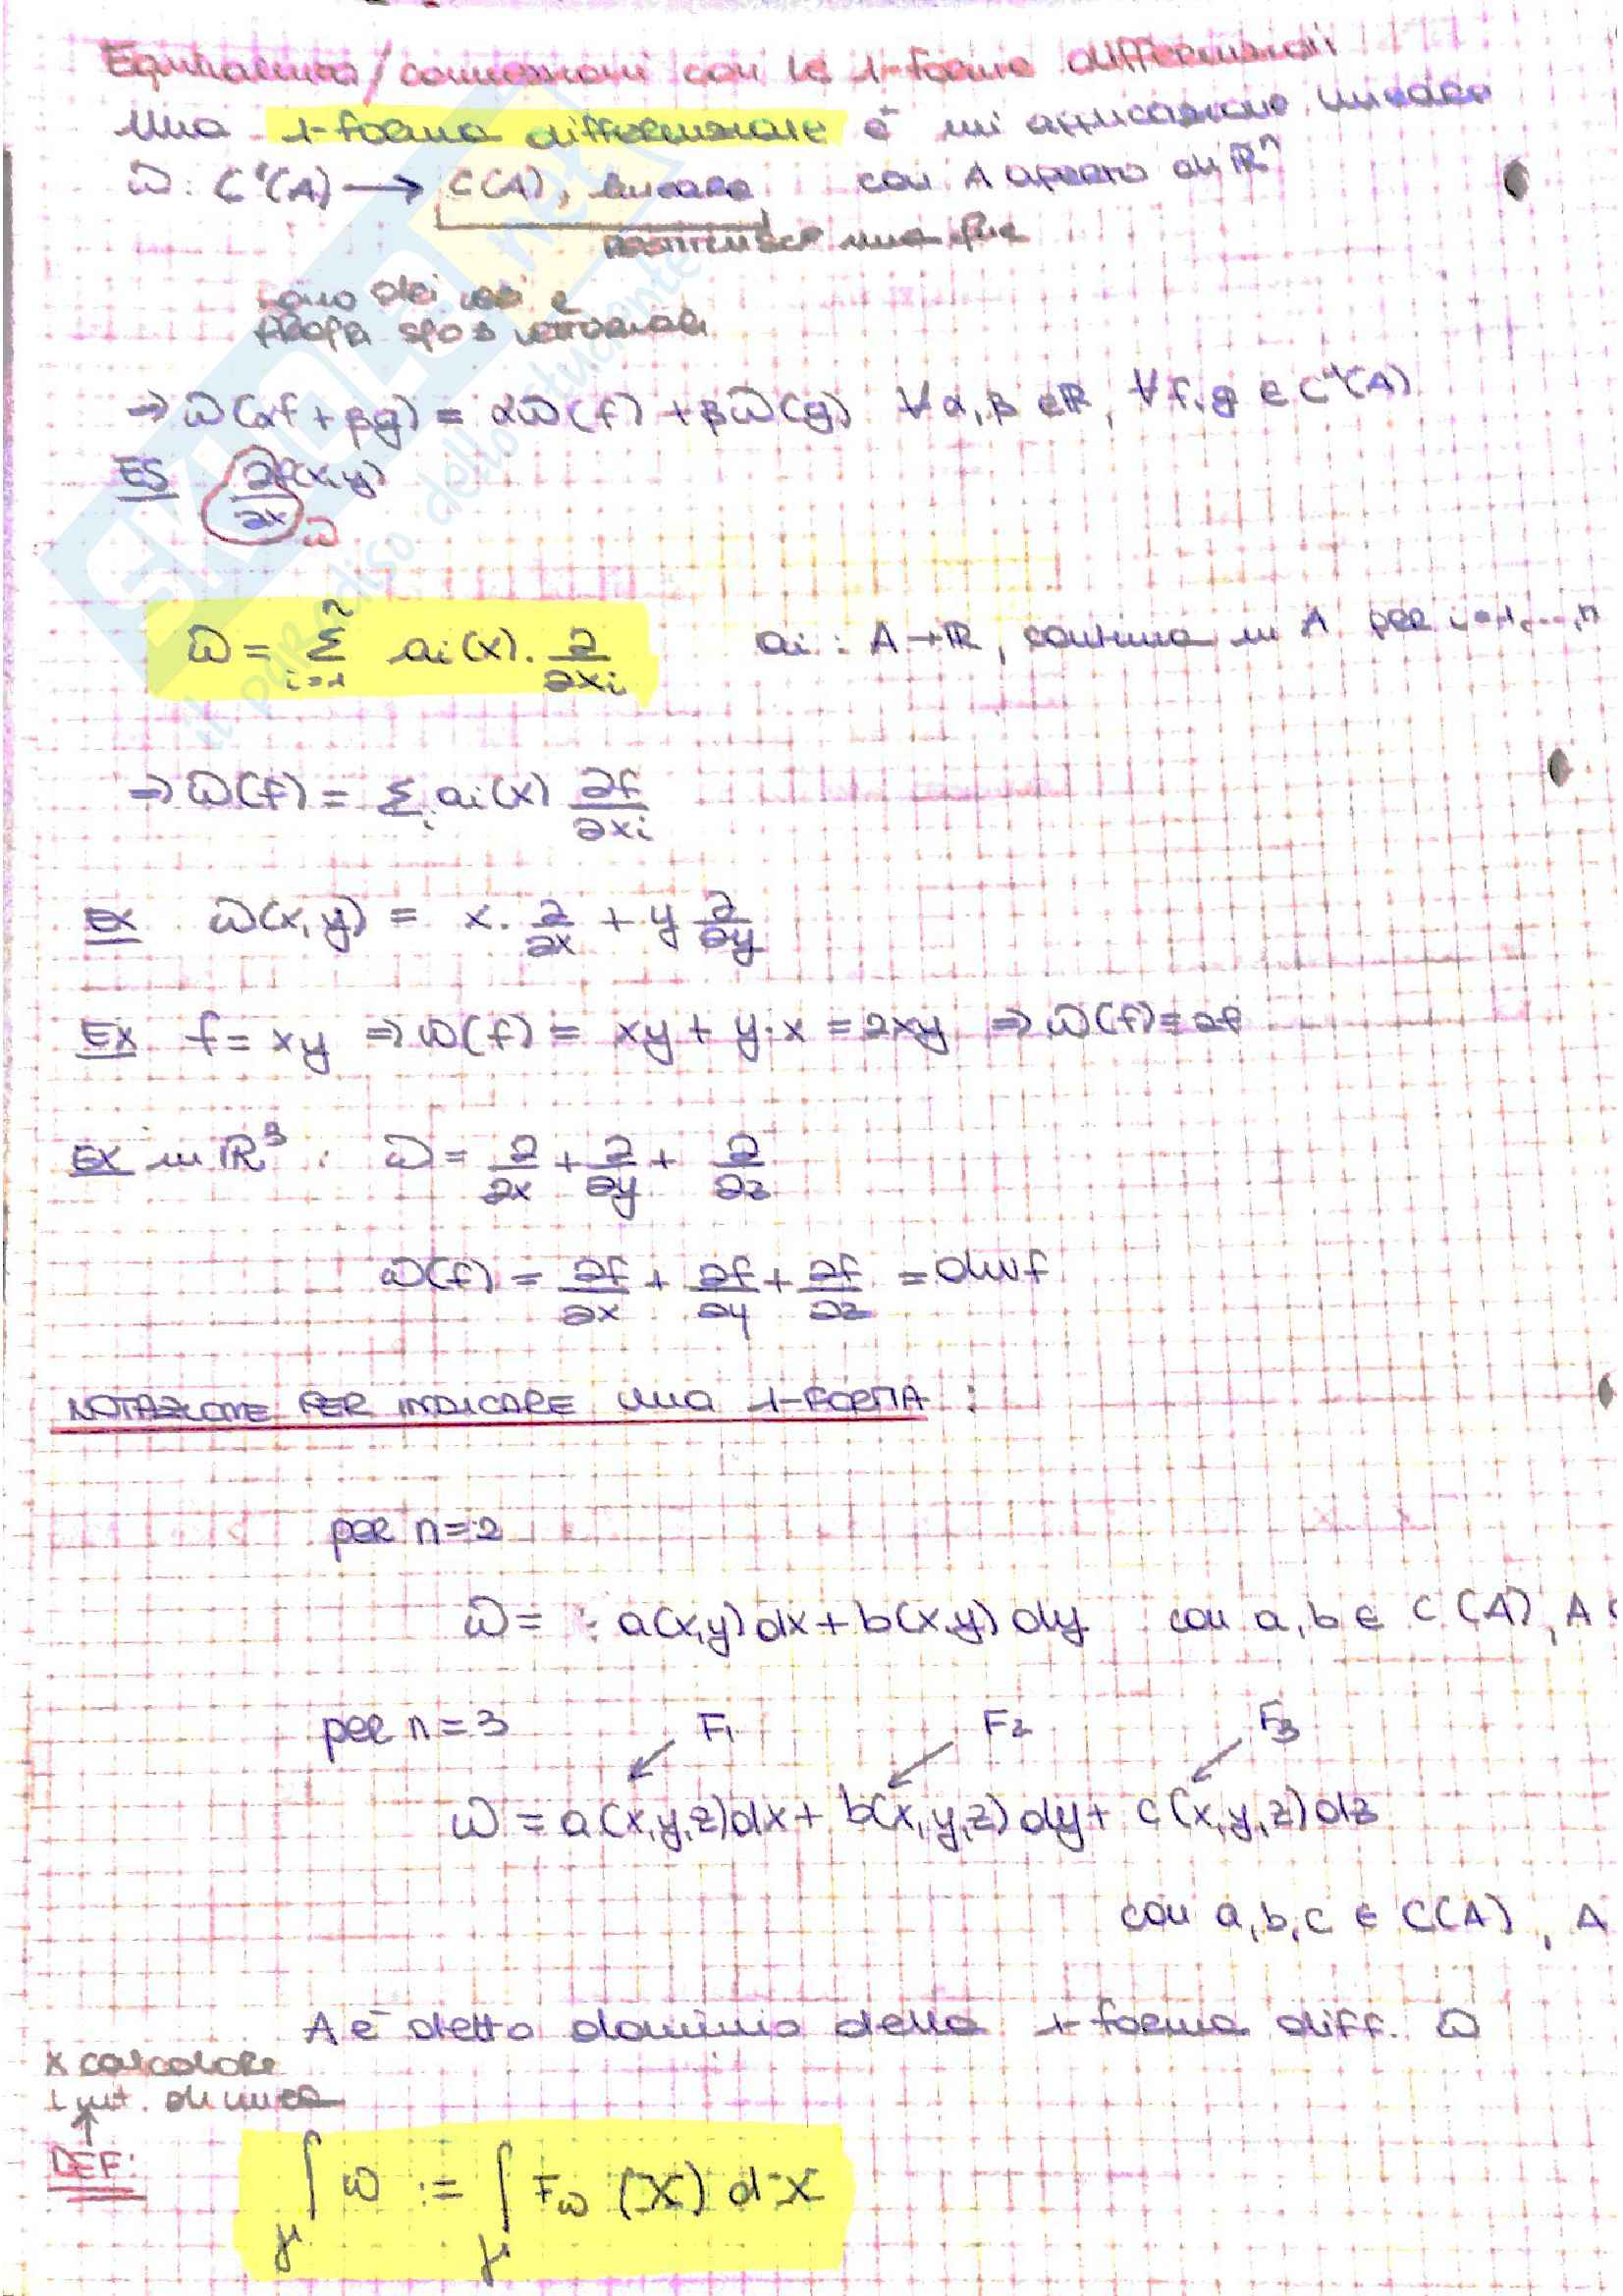 Equivalenza/connessioni con le 1-forme differenziali
Una 1-forma differenziale è un'applicazione lineare
ω: C¹(A) → C(A), lineare con A aperto di ℝⁿ
restituisce una fne
sono dei veri e
propri spazi vettoriali
⇒ ω(αf + βg) = αω(f) + βω(g) ∀α,β ∈ ℝ, ∀f,g ∈ C¹(A)
ES ∂f(x,y)/∂x ω
ω = Σ_{i=1}^{n} ai(x)·∂/∂xi ai : A→ℝ, continua in A per i=1,...,n
⇒ ω(f) = Σ_i ai(x) ∂f/∂xi
EX ω(x,y) = x·∂/∂x + y ∂/∂y
EX f = xy ⇒ ω(f) = xy + y·x = 2xy ⇒ ω(f) = 2f
EX in ℝ³: ω = ∂/∂x + ∂/∂y + ∂/∂z
ω(f) = ∂f/∂x + ∂f/∂y + ∂f/∂z = div f
NOTAZIONE PER INDICARE una 1-FORMA :
per n=2
ω = : a(x,y)dx + b(x,y)dy con a,b ∈ C(A), A
per n=3 F₁ F₂ F₃
ω = a(x,y,z)dx + b(x,y,z)dy + c(x,y,z)dz
con a,b,c ∈ C(A), A
A è detto dominio della 1-forma diff. ω
x calcolare
int. di linea
DEF:
∫_γ ω := ∫_γ Fω(X) dX
SKUOLA.net
il paradiso dello studente